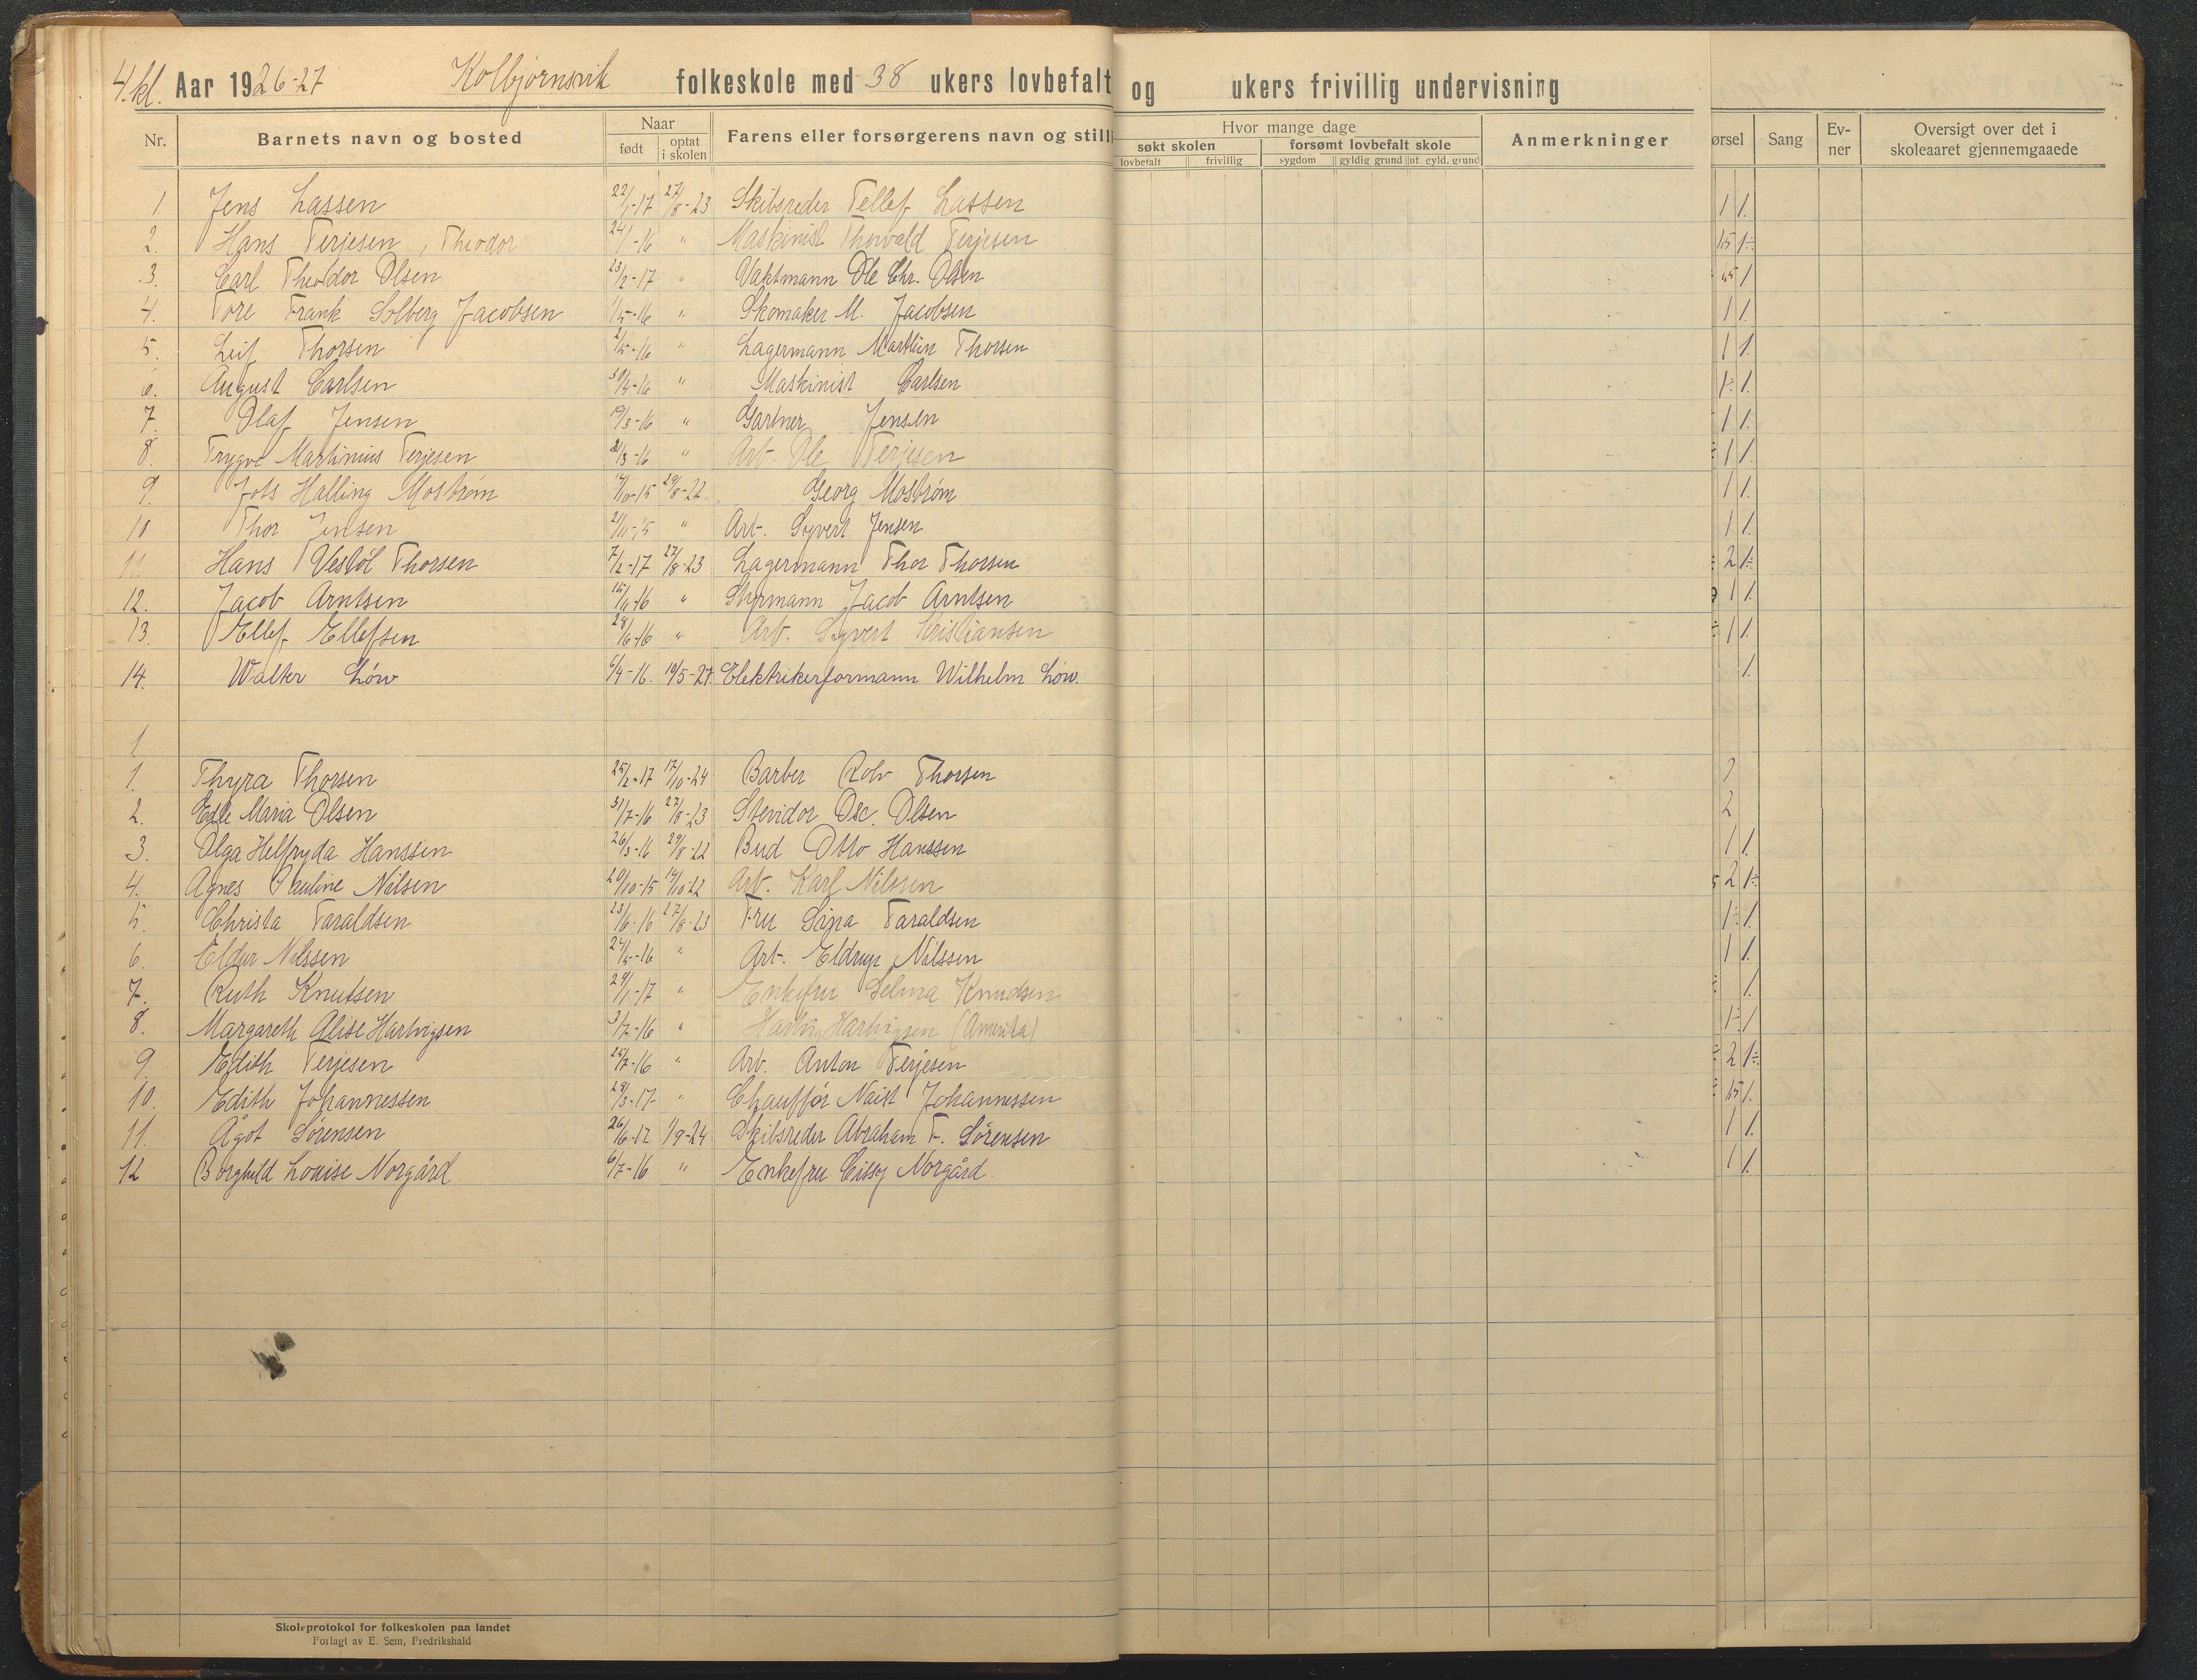 4. kl. Aar 1926-27 Kolbjørnsvik folkeskole med 38 ukers lovbefalt og ukers frivillig undervisning
Nr. Barnets navn og bosted Naar født optat i skolen Farens eller forsørgerens navn og still Hvor mange dage søkt skolen lovbefalt frivillig forsømt lovbefalt skole sygdom gyldig grund int. gyld. grund Anmerkninger ørsel Sang Ev-ner Oversigt over det i skoleaaret gjennemgaaede
1. Jens Lassen 22/1-17 27/8-23 Skibsreder Tellef Lassen 1 1.
2. Hans Terjesen, Theodor 24/1-16 " Maskinist Thorvald Terjesen 1,5 1÷
3. Carl Theodor Olsen 23/2-17 " Vaktmann Ole Chr. Olsen 1
4. Tore Frank Solberg Jacobsen 1/5-16 " Skomaker M. Jacobsen 1 1.
5. Leif Thorsen 2/5-16 " Lagermann Martin Thorsen 1 1.
6. August Carlsen 30/4-16 " Maskinist Carlsen 1÷ 1.
7. Olaf Jensen 19/3-16 " Gartner Jensen 1 1.
8. Trygve Martinius Terjesen /3-16 " Arb. Ole Terjesen 1 1.
9. Halling Mostrøm /10-15 29/8-22 Georg Mostrøm 1 1.
10 Thor Jensen 21/11-15 " Arb. Syvert Jensen 1 1.
11. Hans Vestøl Thorsen 7/2-17 27/8-23 Lagermann Thor Thorsen 2 1÷
12. Jacob Arntsen 15/11-16 " Styrmann Jacob Arntsen 1 1.
13. Ellef Ellefsen 28/6-16 " Arb. Syvert Kristiansen 1 1.
14. Walter Löw 6/4-16. 19/5-27. Elektrikerformann Wilhelm Löw. 1.
1
1. Thyra Thorsen 25/2-17 17/10-24 Barber Rolv Thorsen 2
2. Edle Maria Olsen 31/7-16 27/8-23 Stevidor Osc. Olsen 2
3. Olga Helfryda Hanssen 26/3-16 29/8-22 Bud Otto Hanssen 1 1.
4. Agnes Pauline Nilsen 29/10-15 14/10-22 Arb. Karl Nilssen 2 1÷
5. Christa Taraldsen 23/6-16 27/8-23 Fru Taraldsen 1÷ 1.
6. Nilssen 24/5-16 " Arb. Eldrup Nilssen 1 1.
7. Ruth Knutsen 29/1-17 " Enkefru Selma Knudsen 1.
8. Margareth Alise Hartvigsen 3/7-16 " Hartvig Hartvigsen (Amerika) 1÷ 1
9. Edith Terjesen 25/7-16 " Arb. Anton Terjesen 2 1÷
10. Edith Johannessen 29/3-17 " Chauffør Johannessen 1,5 1.
11. Ågot Sørensen 26/6-17 1/9-24 Skibsreder Abraham F. Sørensen 1 1.
12 Borghild Louise Norgård 6/7-16 " Enkefru Cissy Norgård. 1 1.
Skoleprotokol for folkeskolen paa landet
Forlagt av E. Sem, Fredrikshald